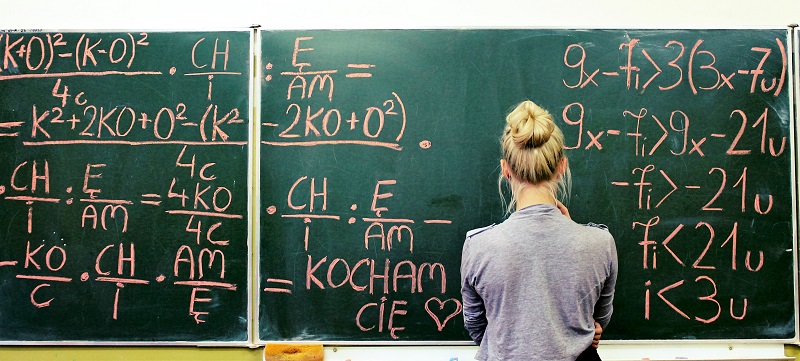 (K+O)²-(K-O)²/4c · CH/i : Ę/AM =
= K²+2KO+O²-(K²-2KO+O²)/4c ·
· CH/i : Ę/AM = 4KO/4c · CH/i : Ę/AM =
= KO/c · CH/i · AM/Ę = KOCHAM
CIĘ ♡
9x-7i>3(3x-7u)
9x-7i>9x-21u
-7i>-21u
7i<21u
i<3u